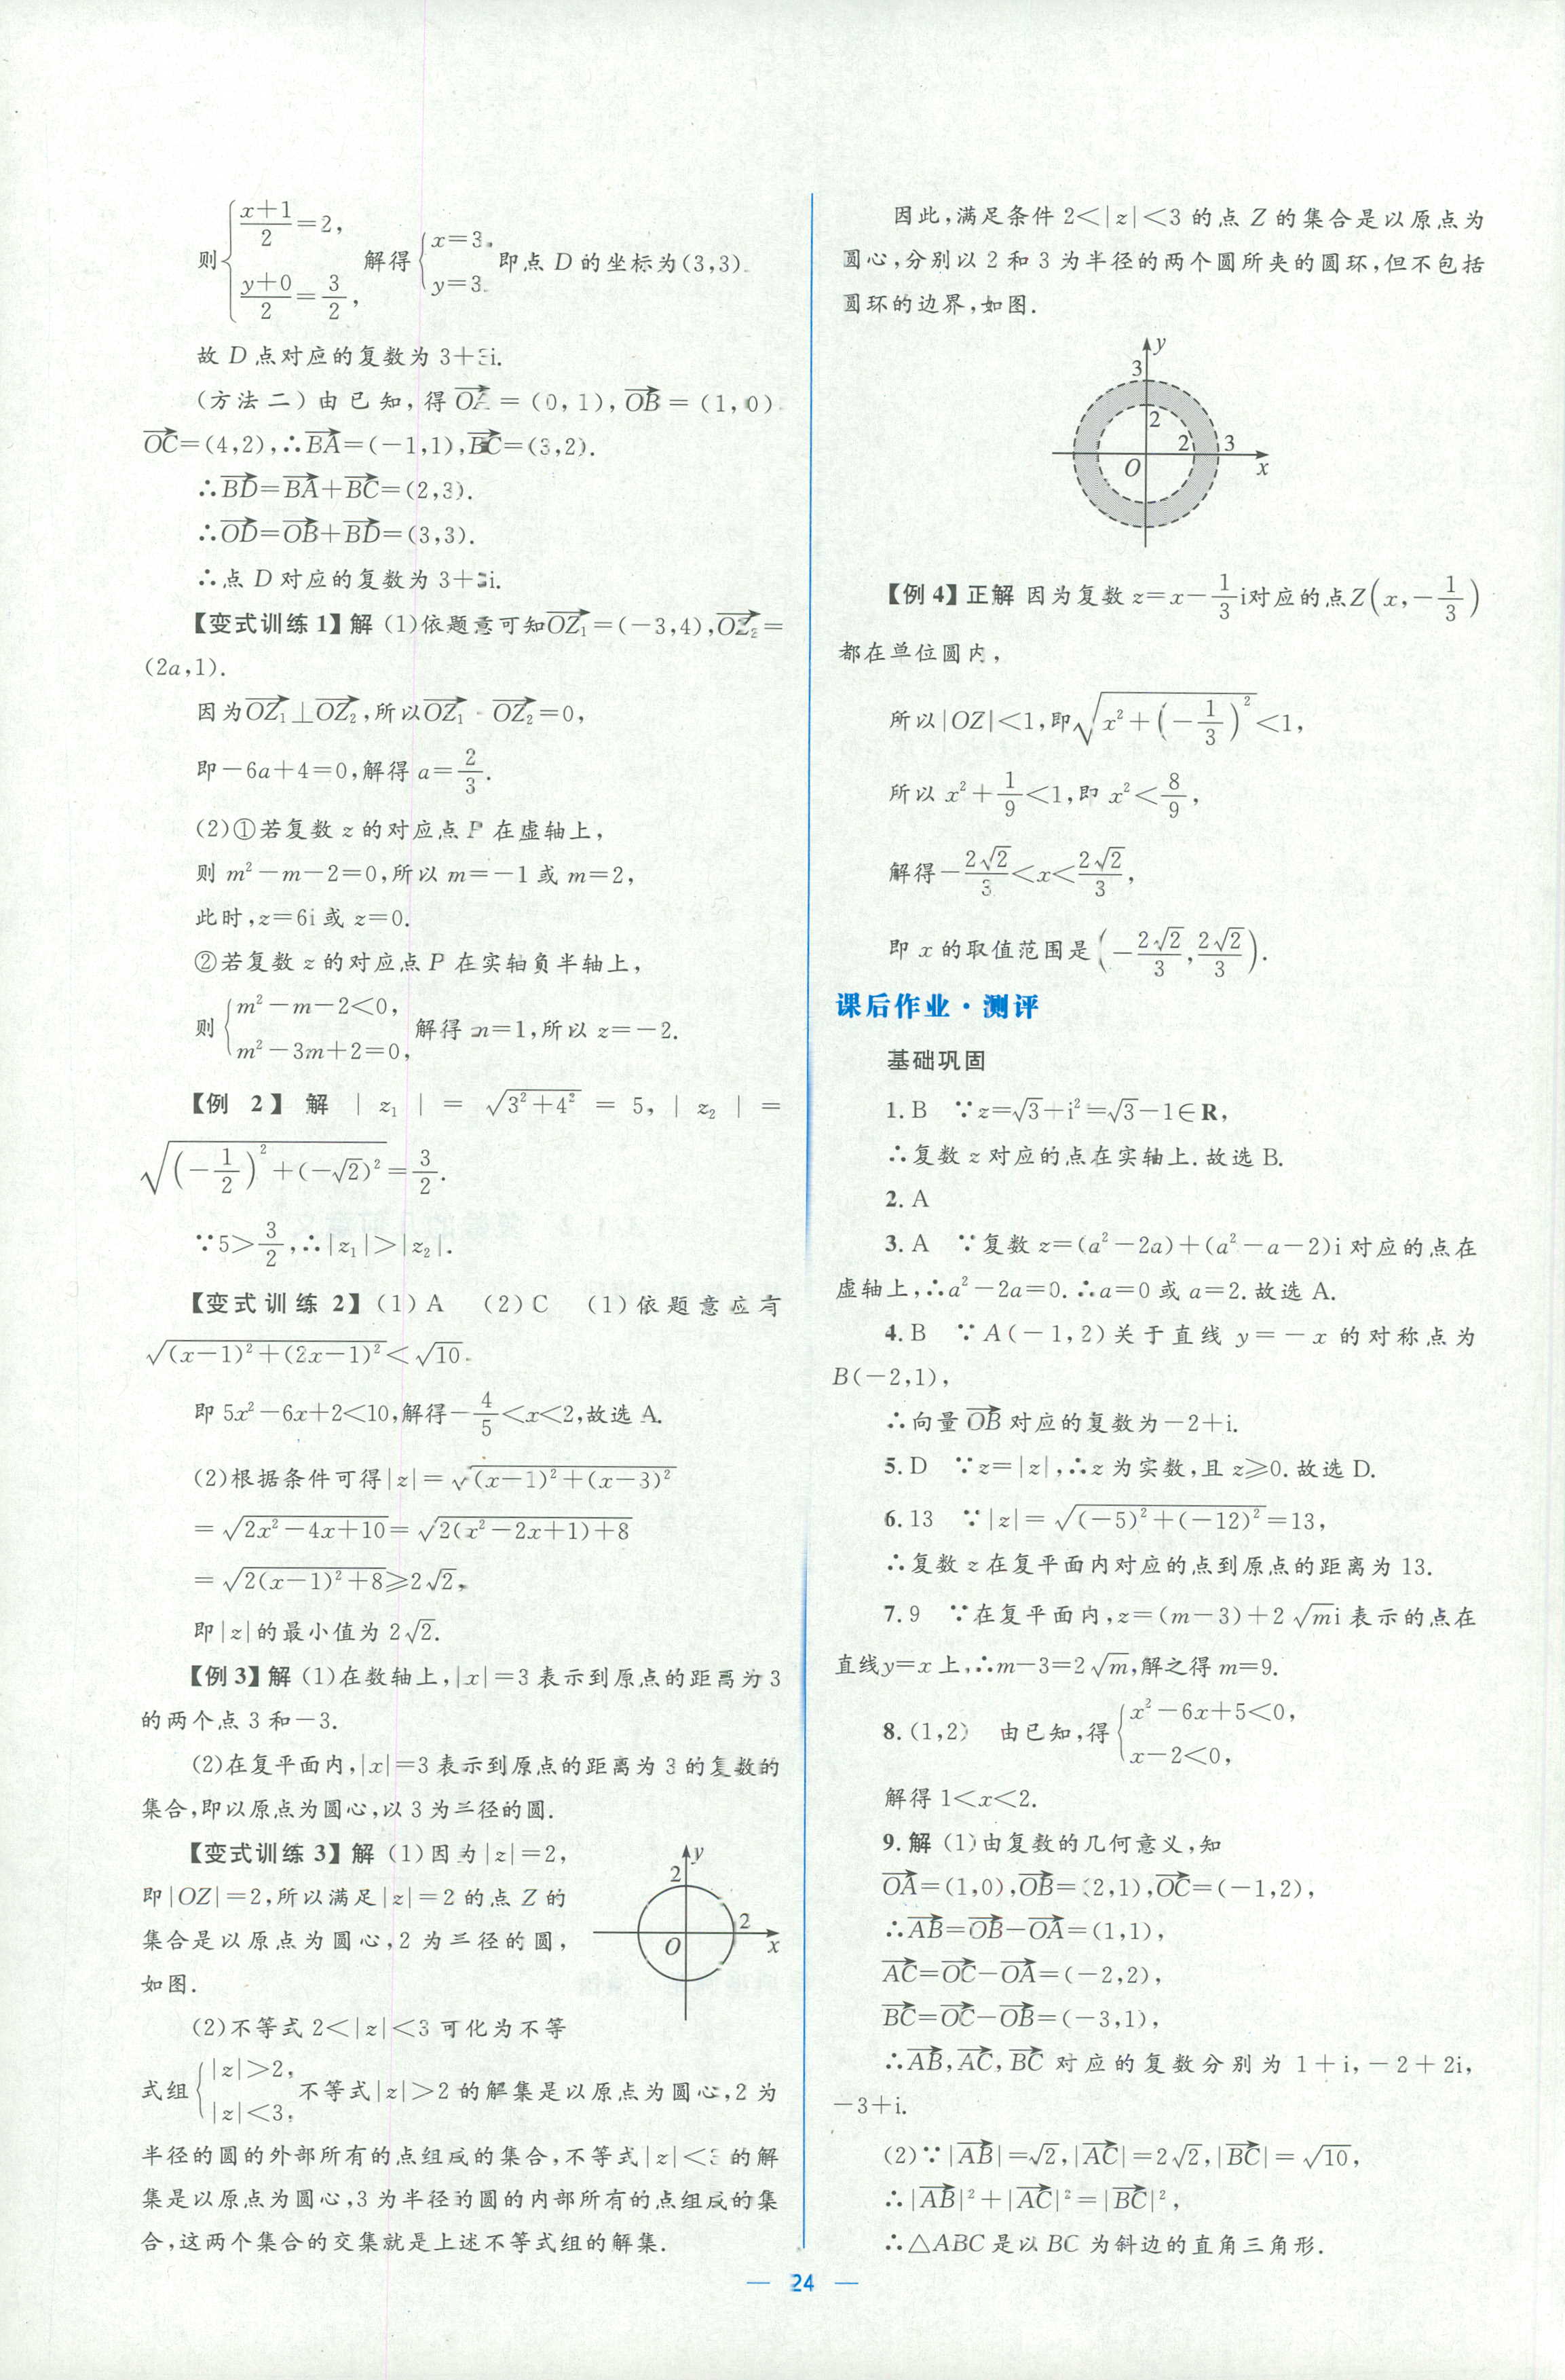 则{(x+1)/2=2, (y+0)/2=3/2, 解得{x=3, y=3. 即点 D 的坐标为(3,3).
故 D 点对应的复数为 3+3i.
(方法二)由已知,得OA→=(0,1),OB→=(1,0)
OC→=(4,2),∴BA→=(-1,1),BC→=(3,2).
∴BD→=BA→+BC→=(2,3).
∴OD→=OB→+BD→=(3,3).
∴点 D 对应的复数为 3+3i.
【变式训练1】解 (1)依题意可知OZ₁→=(-3,4),OZ₂→=
(2a,1).
因为OZ₁→⊥OZ₂→,所以OZ₁→·OZ₂→=0,
即-6a+4=0,解得 a=2/3.
(2)①若复数 z 的对应点 P 在虚轴上,
则 m²-m-2=0,所以 m=-1 或 m=2,
此时,z=6i 或 z=0.
②若复数 z 的对应点 P 在实轴负半轴上,
则{m²-m-2<0, m²-3m+2=0, 解得 m=1,所以 z=-2.
【例 2】 解 |z₁|=√(3²+4²)=5,|z₂|=
√((-1/2)²+(-√2)²)=3/2.
∵5>3/2,∴|z₁|>|z₂|.
【变式训练 2】(1)A (2)C (1)依题意应有
√((x-1)²+(2x-1)²)<√10.
即 5x²-6x+2<10,解得-4/5<x<2,故选 A.
(2)根据条件可得|z|=√((x-1)²+(x-3)²)
=√(2x²-4x+10)=√(2(x²-2x+1)+8)
=√(2(x-1)²+8)≥2√2,
即|z|的最小值为 2√2.
【例 3】解 (1)在数轴上,|x|=3 表示到原点的距离为 3
的两个点 3 和-3.
(2)在复平面内,|x|=3 表示到原点的距离为 3 的复数的
集合,即以原点为圆心,以 3 为半径的圆.
【变式训练 3】解 (1)因为|z|=2,
即|OZ|=2,所以满足|z|=2 的点 Z 的
集合是以原点为圆心,2 为半径的圆,
如图.
y
2
2
O
x
(2)不等式 2<|z|<3 可化为不等
式组{|z|>2, |z|<3, 不等式|z|>2 的解集是以原点为圆心,2 为
半径的圆的外部所有的点组成的集合,不等式|z|<3 的解
集是以原点为圆心,3 为半径的圆的内部所有的点组成的集
合,这两个集合的交集就是上述不等式组的解集.
因此,满足条件 2<|z|<3 的点 Z 的集合是以原点为
圆心,分别以 2 和 3 为半径的两个圆所夹的圆环,但不包括
圆环的边界,如图.
y
3
2
2 3
O
x
【例 4】正解 因为复数 z=x-1/3i对应的点Z(x,-1/3)
都在单位圆内,
所以|OZ|<1,即√(x²+(-1/3)²)<1,
所以 x²+1/9<1,即 x²<8/9,
解得-2√2/3<x<2√2/3,
即 x 的取值范围是(-2√2/3,2√2/3).
课后作业·测评
基础巩固
1.B ∵z=√3+i²=√3-1∈R,
∴复数 z 对应的点在实轴上.故选 B.
2.A
3.A ∵复数 z=(a²-2a)+(a²-a-2)i 对应的点在
虚轴上,∴a²-2a=0.∴a=0 或 a=2.故选 A.
4.B ∵A(-1,2)关于直线 y=-x 的对称点为
B(-2,1),
∴向量OB→对应的复数为-2+i.
5.D ∵z=|z|,∴z 为实数,且 z≥0.故选 D.
6.13 ∵|z|=√((-5)²+(-12)²)=13,
∴复数 z 在复平面内对应的点到原点的距离为 13.
7.9 ∵在复平面内,z=(m-3)+2√mi 表示的点在
直线y=x 上,∴m-3=2√m,解之得 m=9.
8.(1,2) 由已知,得{x²-6x+5<0, x-2<0,
解得 1<x<2.
9.解 (1)由复数的几何意义,知
OA→=(1,0),OB→=(2,1),OC→=(-1,2),
∴AB→=OB→-OA→=(1,1),
AC→=OC→-OA→=(-2,2),
BC→=OC→-OB→=(-3,1),
∴AB→,AC→,BC→ 对应的复数分别为 1+i,-2+2i,
-3+i.
(2)∵|AB→|=√2,|AC→|=2√2,|BC→|=√10,
∴|AB→|²+|AC→|²=|BC→|²,
∴△ABC 是以 BC 为斜边的直角三角形.
— 24 —